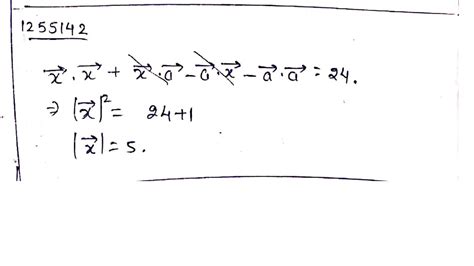 1255142
x⃗ . x⃗ + x⃗ . a⃗ - a⃗ . x⃗ - a⃗ . a⃗ = 24.
⇒ |x⃗|² = 24+1
|x⃗| = 5.